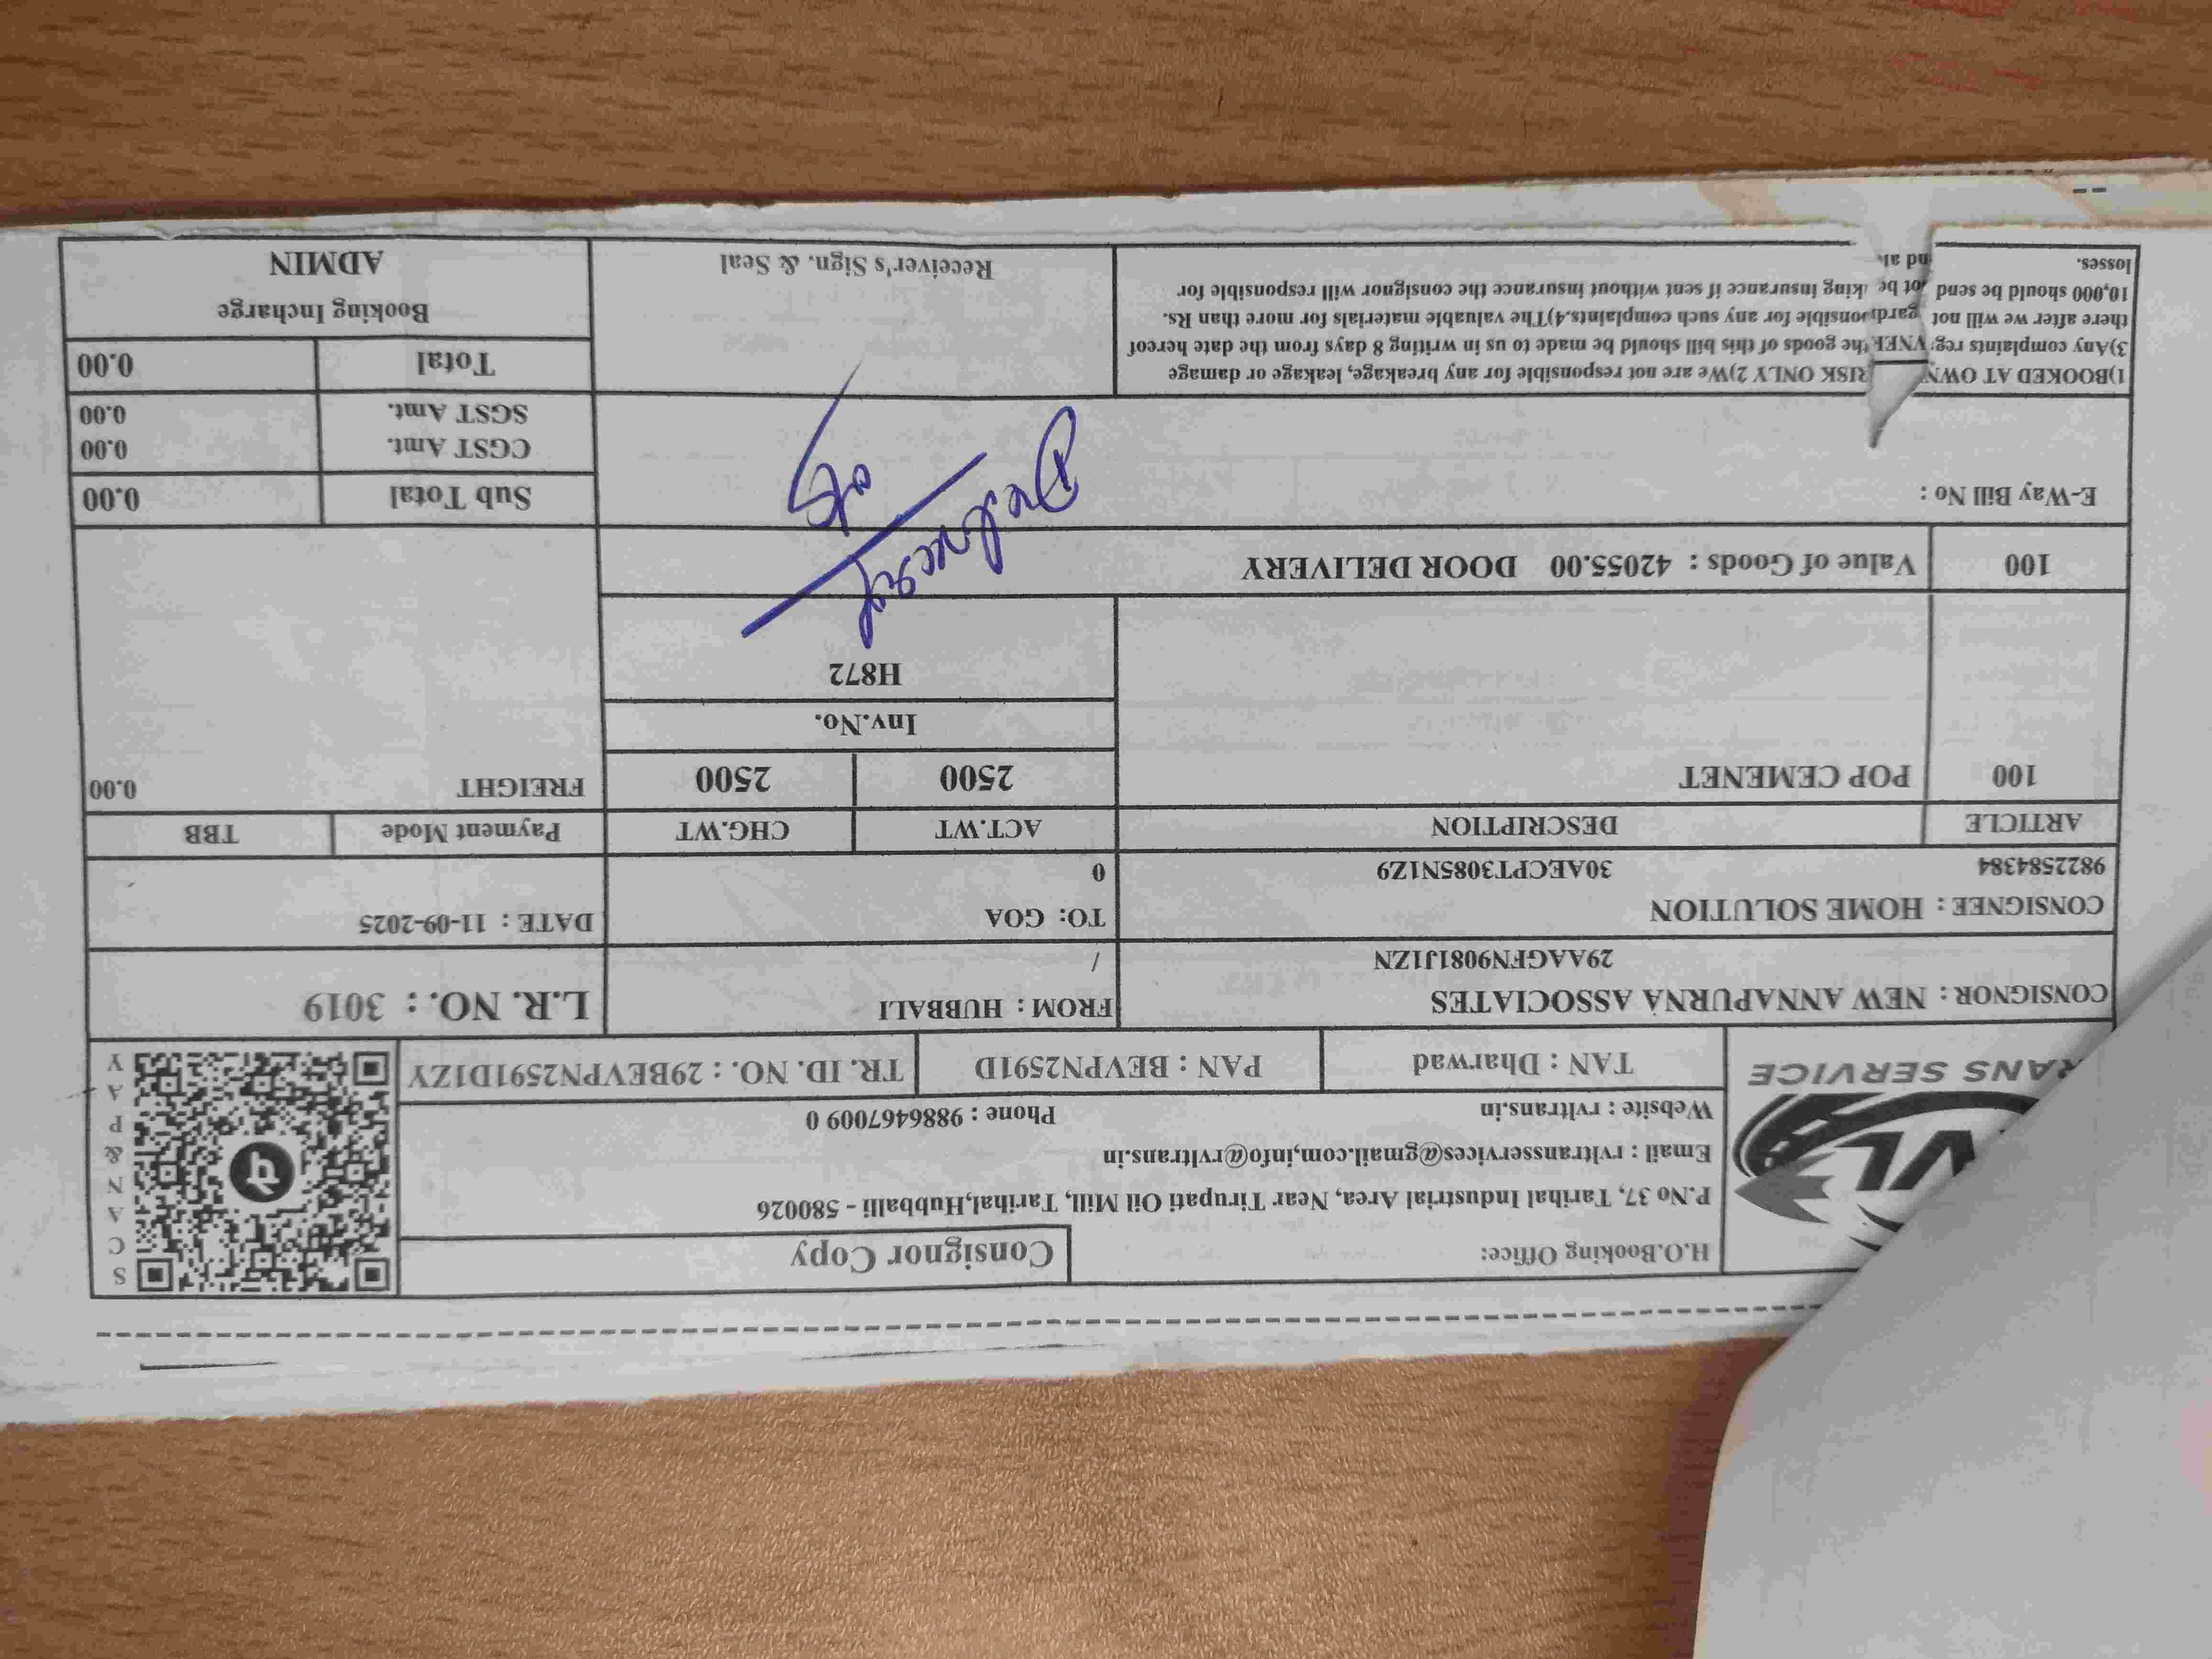 Consignor Copy
H.O.Booking Office:
P.No 37, Tarihal Industrial Area, Near Tirupati Oil Mill, Tarihal,Hubballi - 580026
Email : rvltransservices@gmail.com,info@rvltrans.in
Website : rvltrans.in Phone : 9886467009 0
VL
RANS SERVICE
TAN : Dharwad PAN : BEVPN2591D TR. ID. NO. : 29BEVPN2591D1ZY
SCAN & PAY
CONSIGNOR : NEW ANNAPURNA ASSOCIATES FROM : HUBBALI L.R. NO. : 3019
29AAGFN9081J1ZN /
CONSIGNEE : HOME SOLUTION TO: GOA DATE : 11-09-2025
9822584384 30AECPT3085N1Z9 0
ARTICLE DESCRIPTION ACT.WT CHG.WT Payment Mode TBB
100 POP CEMENET 2500 2500 FREIGHT 0.00
Inv.No.
H872
100 Value of Goods : 42055.00 DOOR DELIVERY
E-Way Bill No : Sub Total 0.00
CGST Amt. 0.00
SGST Amt. 0.00
Total 0.00
1)BOOKED AT OWN RISK ONLY 2)We are not responsible for any breakage, leakage or damage
3)Any complaints reg VNER the goods of this bill should be made to us in writing 8 days from the date hereof
there after we will not gard onsible for any such complaints.4)The valuable materials for more than Rs.
10,000 should be send ot be king insurance if sent without insurance the consignor will responsible for
losses. nd al
Receiver's Sign. & Seal
Booking Incharge
ADMIN